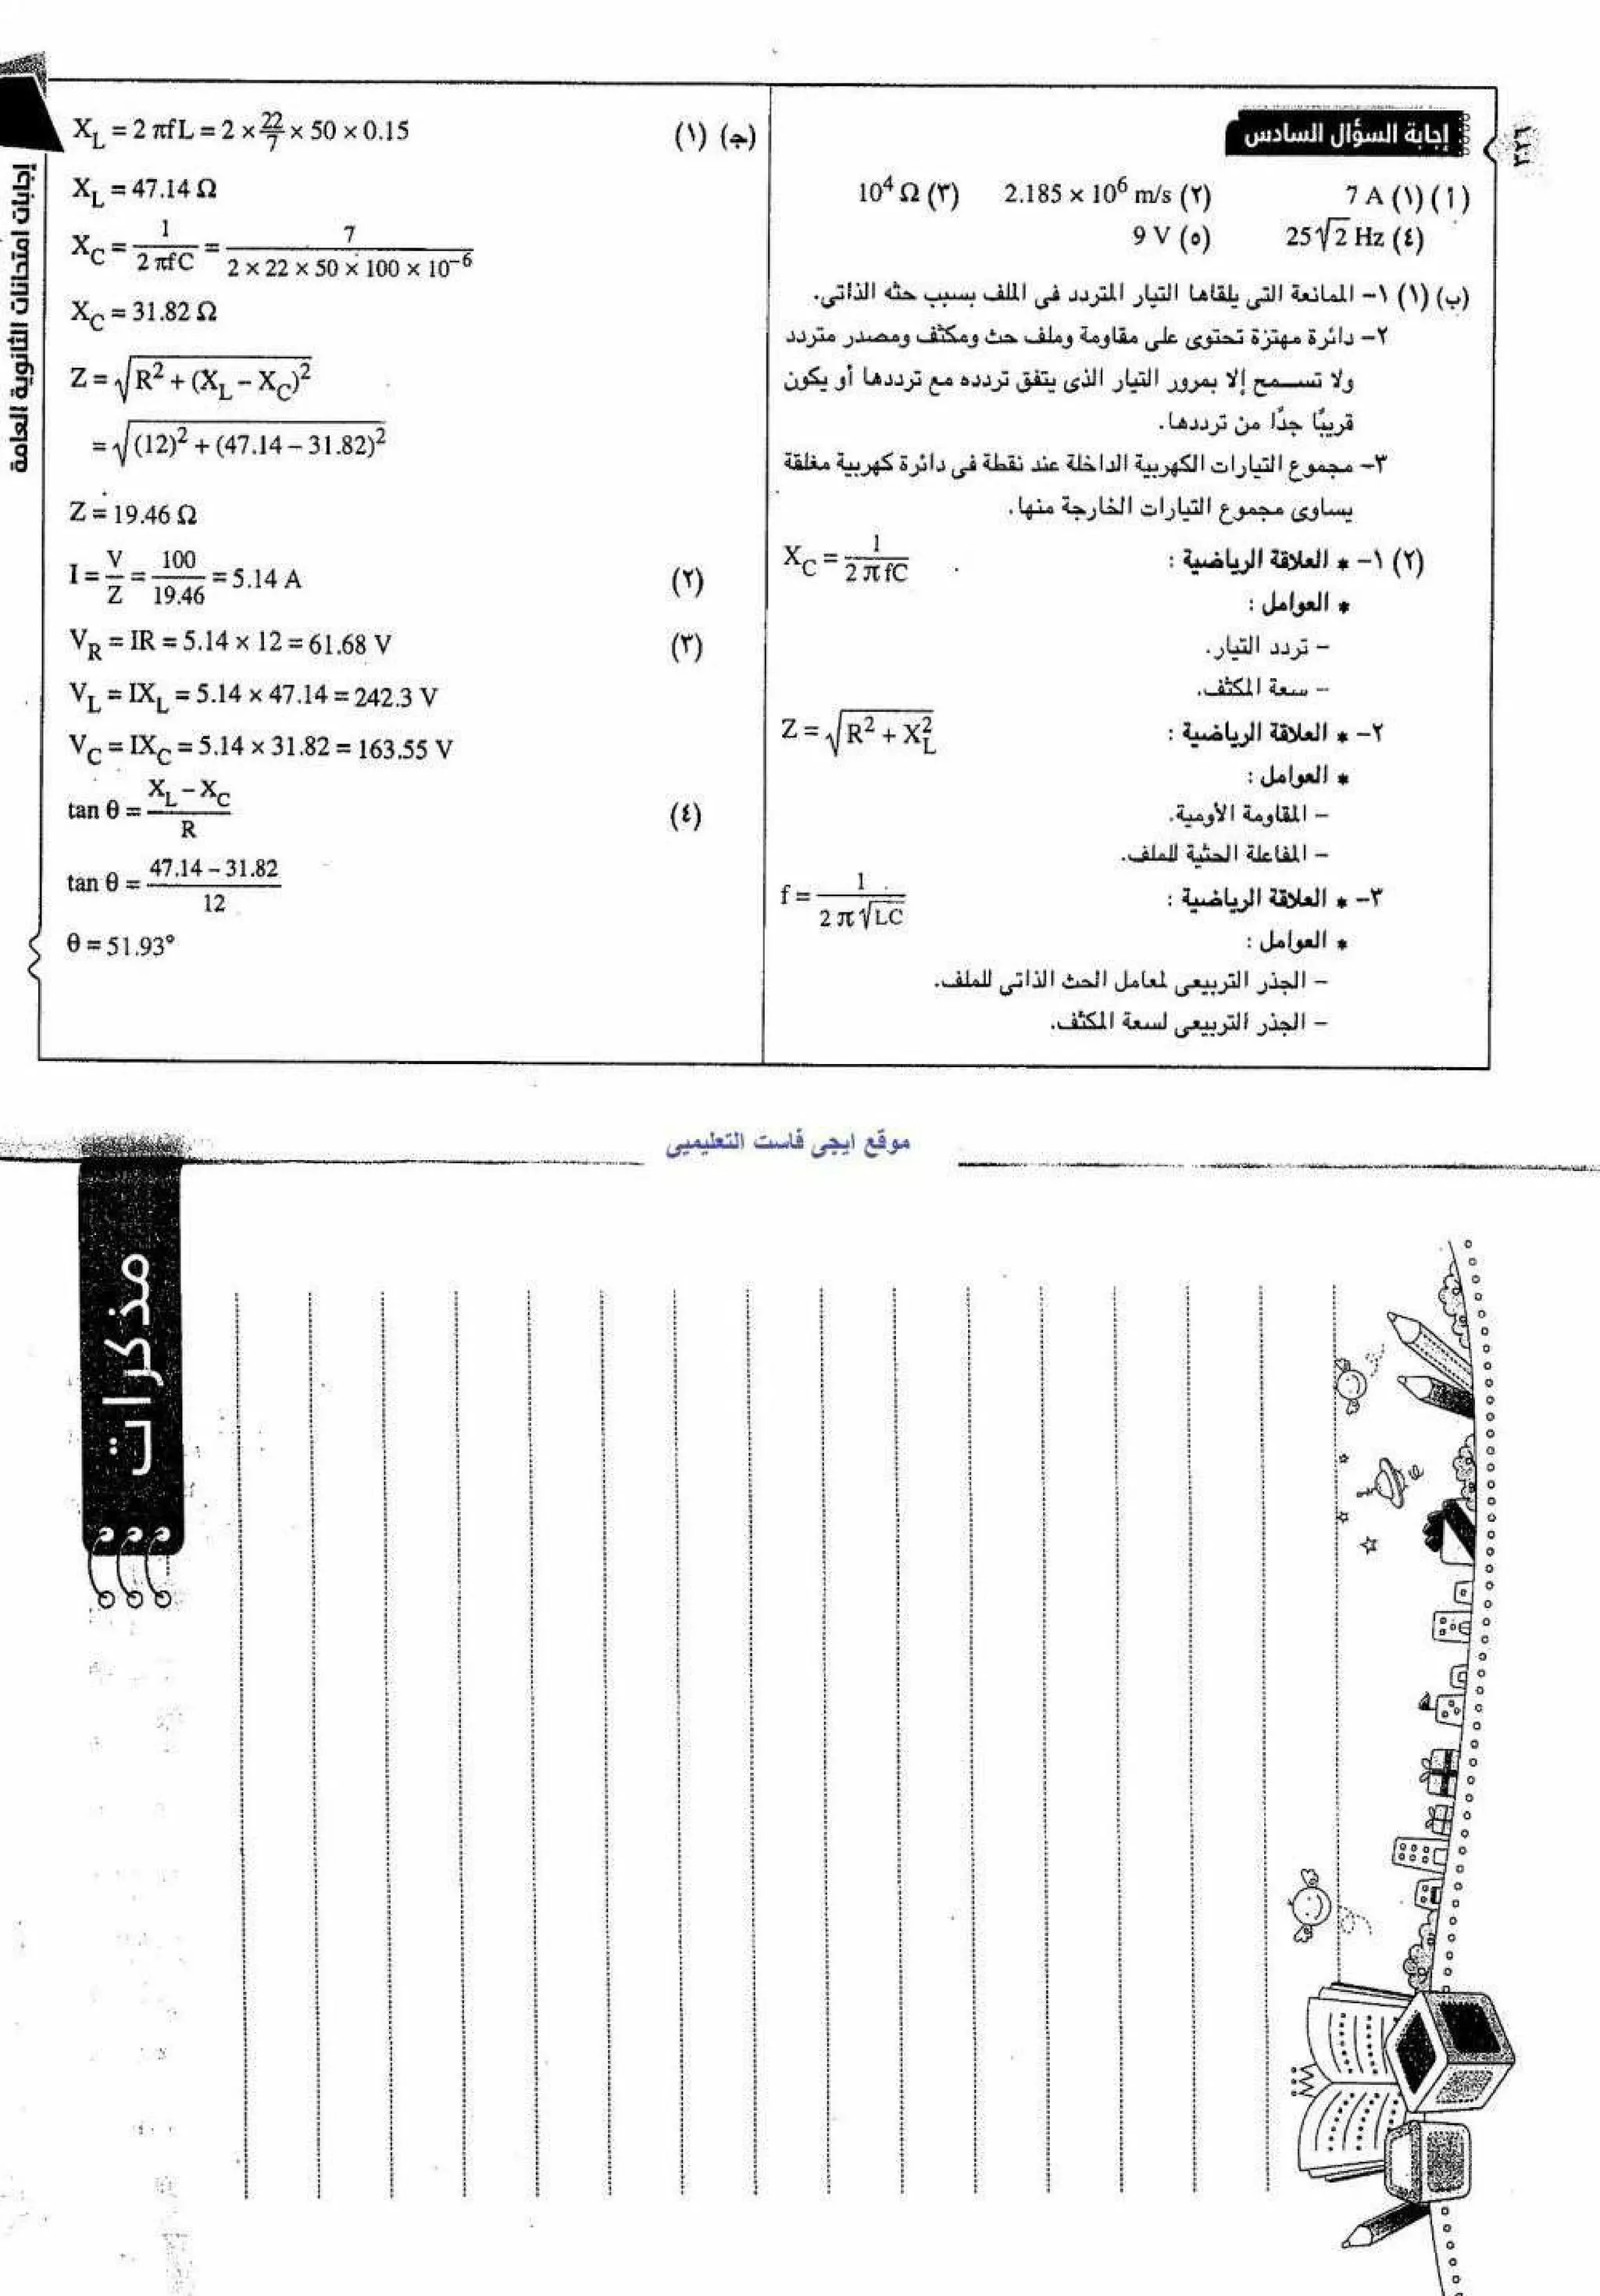 ٣٢٦
إجابات امتحانات الثانوية العامة
إجابة السؤال السادس
(أ) (١) 7 A (٢) 2.185 × 10⁶ m/s (٣) 10⁴ Ω
(٤) 25√2 Hz (٥) 9 V
(ب) (١) ١- الممانعة التى يلقاها التيار المتردد فى الملف بسبب حثه الذاتى.
٢- دائرة مهتزة تحتوى على مقاومة وملف حث ومكثف ومصدر متردد
ولا تسمح إلا بمرور التيار الذى يتفق تردده مع ترددها أو يكون
قريبًا جدًا من ترددها.
٣- مجموع التيارات الكهربية الداخلة عند نقطة فى دائرة كهربية مغلقة
يساوى مجموع التيارات الخارجة منها.
(٢) ١- * العلاقة الرياضية : X_C = 1 / (2 π fC)
* العوامل :
- تردد التيار.
- سعة المكثف.
٢- * العلاقة الرياضية : Z = √(R² + X_L²)
* العوامل :
- المقاومة الأومية.
- المفاعلة الحثية للملف.
٣- * العلاقة الرياضية : f = 1 / (2 π √LC)
* العوامل :
- الجذر التربيعى لمعامل الحث الذاتى للملف.
- الجذر التربيعى لسعة المكثف.
(جـ) (١) X_L = 2 πfL = 2 × 22/7 × 50 × 0.15
X_L = 47.14 Ω
X_C = 1 / (2 πfC) = 7 / (2 × 22 × 50 × 100 × 10⁻⁶)
X_C = 31.82 Ω
Z = √(R² + (X_L – X_C)²)
= √((12)² + (47.14 – 31.82)²)
Z = 19.46 Ω
(٢) I = V/Z = 100/19.46 = 5.14 A
(٣) V_R = IR = 5.14 × 12 = 61.68 V
V_L = IX_L = 5.14 × 47.14 = 242.3 V
V_C = IX_C = 5.14 × 31.82 = 163.55 V
(٤) tan θ = (X_L – X_C) / R
tan θ = (47.14 – 31.82) / 12
θ = 51.93°
موقع ايجى فاست التعليميى
مذكرات